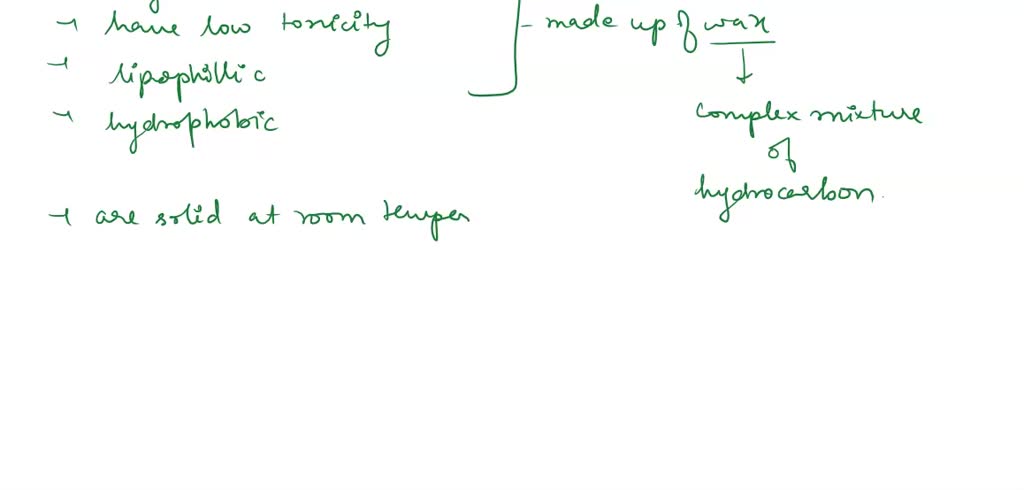 → have low toxicity
→ lipophillic
→ hydrophobic
→ are solid at room temper
- made up of wax
↓
complex mixture
of
hydrocarbon.